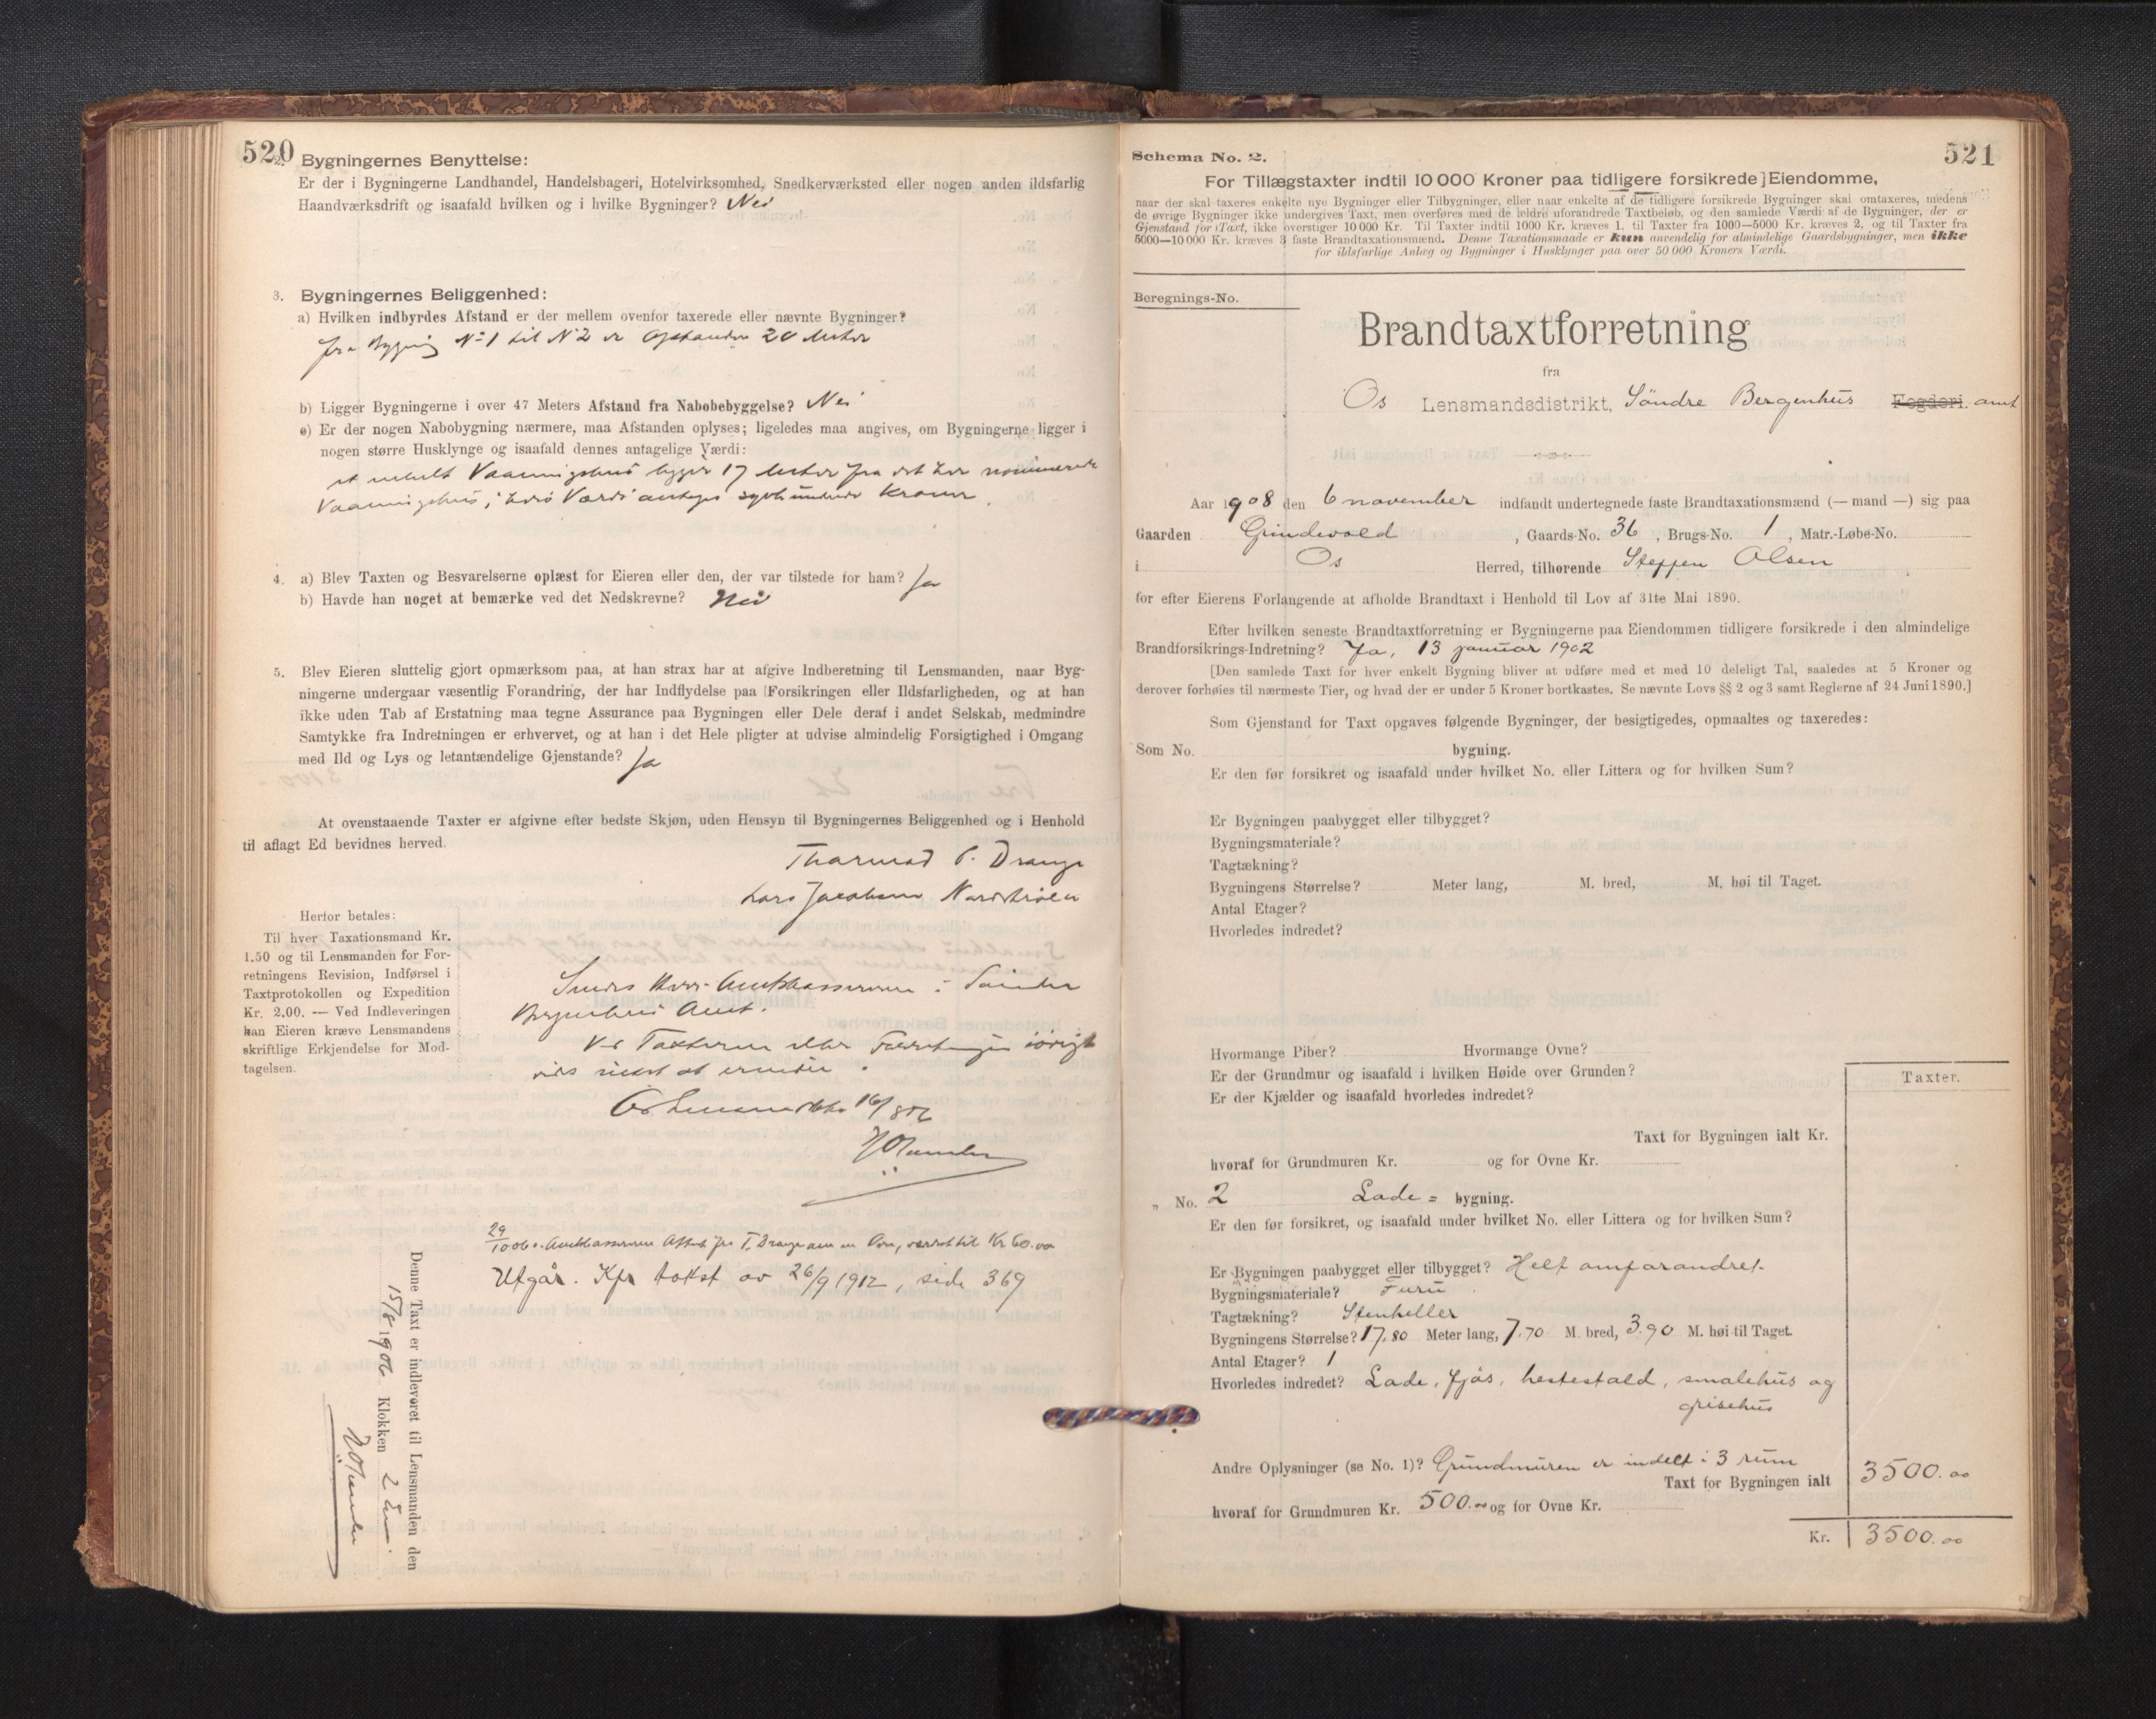 520
2. Bygningernes Benyttelse:
Er der i Bygningerne Landhandel, Handelsbageri, Hotelvirksomhed, Snedkerværksted eller nogen anden ildsfarlig
Haandværksdrift og isaafald hvilken og i hvilke Bygninger? Nei
3. Bygningernes Beliggenhed:
a) Hvilken indbyrdes Afstand er der mellem ovenfor taxerede eller nævnte Bygninger?
fra Bygning No 1 til No 2 er Afstanden 20 Meter
b) Ligger Bygningerne i over 47 Meters Afstand fra Nabobebyggelse? Nei
c) Er der nogen Nabobygning nærmere, maa Afstanden oplyses; ligeledes maa angives, om Bygningerne ligger i
nogen større Husklynge og isaafald dennes antagelige Værdi:
et enkelt Vaaningshus ligger 17 Meter fra det her nominerede
Vaaningshus, hvis Værdi antages syvhundrede Kroner
4. a) Blev Taxten og Besvarelserne oplæst for Eieren eller den, der var tilstede for ham? Ja
b) Havde han noget at bemærke ved det Nedskrevne? Nei
5. Blev Eieren sluttelig gjort opmærksom paa, at han strax har at afgive Indberetning til Lensmanden, naar Byg-
ningerne undergaar væsentlig Forandring, der har Indflydelse paa Forsikringen eller Ildsfarligheden, og at han
ikke uden Tab af Erstatning maa tegne Assurance paa Bygningen eller Dele deraf i andet Selskab, medmindre
Samtykke fra Indretningen er erhvervet, og at han i det Hele pligter at udvise almindelig Forsigtighed i Omgang
med Ild og Lys og letantændelige Gjenstande? Ja
At ovenstaaende Taxter er afgivne efter bedste Skjøn, uden Hensyn til Bygningernes Beliggenhed og i Henhold
til aflagt Ed bevidnes herved.
Thormod P. Drange
Lars Jacobsen
Herfor betales:
Til hver Taxationsmand Kr.
1.50 og til Lensmanden for For-
retningens Revision, Indførsel i
Taxtprotokollen og Expedition
Kr. 2.00. — Ved Indleveringen
kan Eieren kræve Lensmandens
skriftlige Erkjendelse for Mod-
tagelsen.
Sendes Herr Amtskassereren i Søndre
Bergenhus Amt.
Ved Taxterne eller Forretningen iøvrigt
vides intet at erindre.
Os 16/8 06
29/10 06 Amtskassereren Attest fra T. Drange om en Ovn, værdsat til Kr 60.00
Utgår. Kfr takst av 26/9 1912, side 369
Denne Taxt er indleveret til Lensmanden den
15/8 1906 Klokken 2 Em.
521
Schema No. 2.
For Tillægstaxter indtil 10 000 Kroner paa tidligere forsikrede] Eiendomme,
naar der skal taxeres enkelte nye Bygninger eller Tilbygninger, eller naar enkelte af de tidligere forsikrede Bygninger skal omtaxeres, medens
de øvrige Bygninger ikke undergives Taxt, men overføres med de ældre uforandrede Taxtbeløb, og den samlede Værdi af de Bygninger, der er
Gjenstand for Taxt, ikke overstiger 10 000 Kr. Til Taxter indtil 1000 Kr. kræves 1, til Taxter fra 1000—5000 Kr. kræves 2, og til Taxter fra
5000—10 000 Kr. kræves 3 faste Brandtaxationsmænd. Denne Taxationsmaade er kun anvendelig for almindelige Gaardsbygninger, men ikke
for ildsfarlige Anlæg og Bygninger i Husklynger paa over 50 000 Kroners Værdi.
Beregnings-No.
Brandtaxtforretning
fra
Os Lensmandsdistrikt, Söndre Bergenhus Fogderi. amt
Aar 1908 den 6 november indfandt undertegnede faste Brandtaxationsmænd (— mand —) sig paa
Gaarden Grindevold, Gaards-No. 36, Brugs-No. 1, Matr.-Løbe-No.
i Os Herred, tilhørende Steffen Olsen
for efter Eierens Forlangende at afholde Brandtaxt i Henhold til Lov af 31te Mai 1890.
Efter hvilken seneste Brandtaxtforretning er Bygningerne paa Eiendommen tidligere forsikrede i den almindelige
Brandforsikrings-Indretning? Ja, 13 januar 1902
[Den samlede Taxt for hver enkelt Bygning bliver at udføre med et med 10 deleligt Tal, saaledes at 5 Kroner og
derover forhøies til nærmeste Tier, og hvad der er under 5 Kroner bortkastes. Se nævnte Lovs §§ 2 og 3 samt Reglerne af 24 Juni 1890.]
Som Gjenstand for Taxt opgaves følgende Bygninger, der besigtigedes, opmaaltes og taxeredes:
Som No. bygning.
Er den før forsikret og isaafald under hvilket No. eller Littera og for hvilken Sum?
Er Bygningen paabygget eller tilbygget?
Bygningsmateriale?
Tagtækning?
Bygningens Størrelse? Meter lang, M. bred, M. høi til Taget.
Antal Etager?
Hvorledes indredet?
Hvormange Piber? Hvormange Ovne?
Er der Grundmur og isaafald i hvilken Høide over Grunden?
Er der Kjælder og isaafald hvorledes indredet?
Taxter.
Taxt for Bygningen ialt Kr.
hvoraf for Grundmuren Kr. og for Ovne Kr.
„ No. 2 Lade= bygning.
Er den før forsikret, og isaafald under hvilket No. eller Littera og for hvilken Sum?
Er Bygningen paabygget eller tilbygget? Helt omforandret
Bygningsmateriale? Furu
Tagtækning? Stenheller
Bygningens Størrelse? 17,80 Meter lang, 7.70 M. bred, 3.90 M. høi til Taget.
Antal Etager? 1
Hvorledes indredet? Lade, fjös, hestestald, smalehus og
grisehus
Andre Oplysninger (se No. 1)? Grundmuren er indelt i 3 rum
Taxt for Bygningen ialt 3500.00
hvoraf for Grundmuren Kr. 500.00 og for Ovne Kr.
Kr. 3500.00